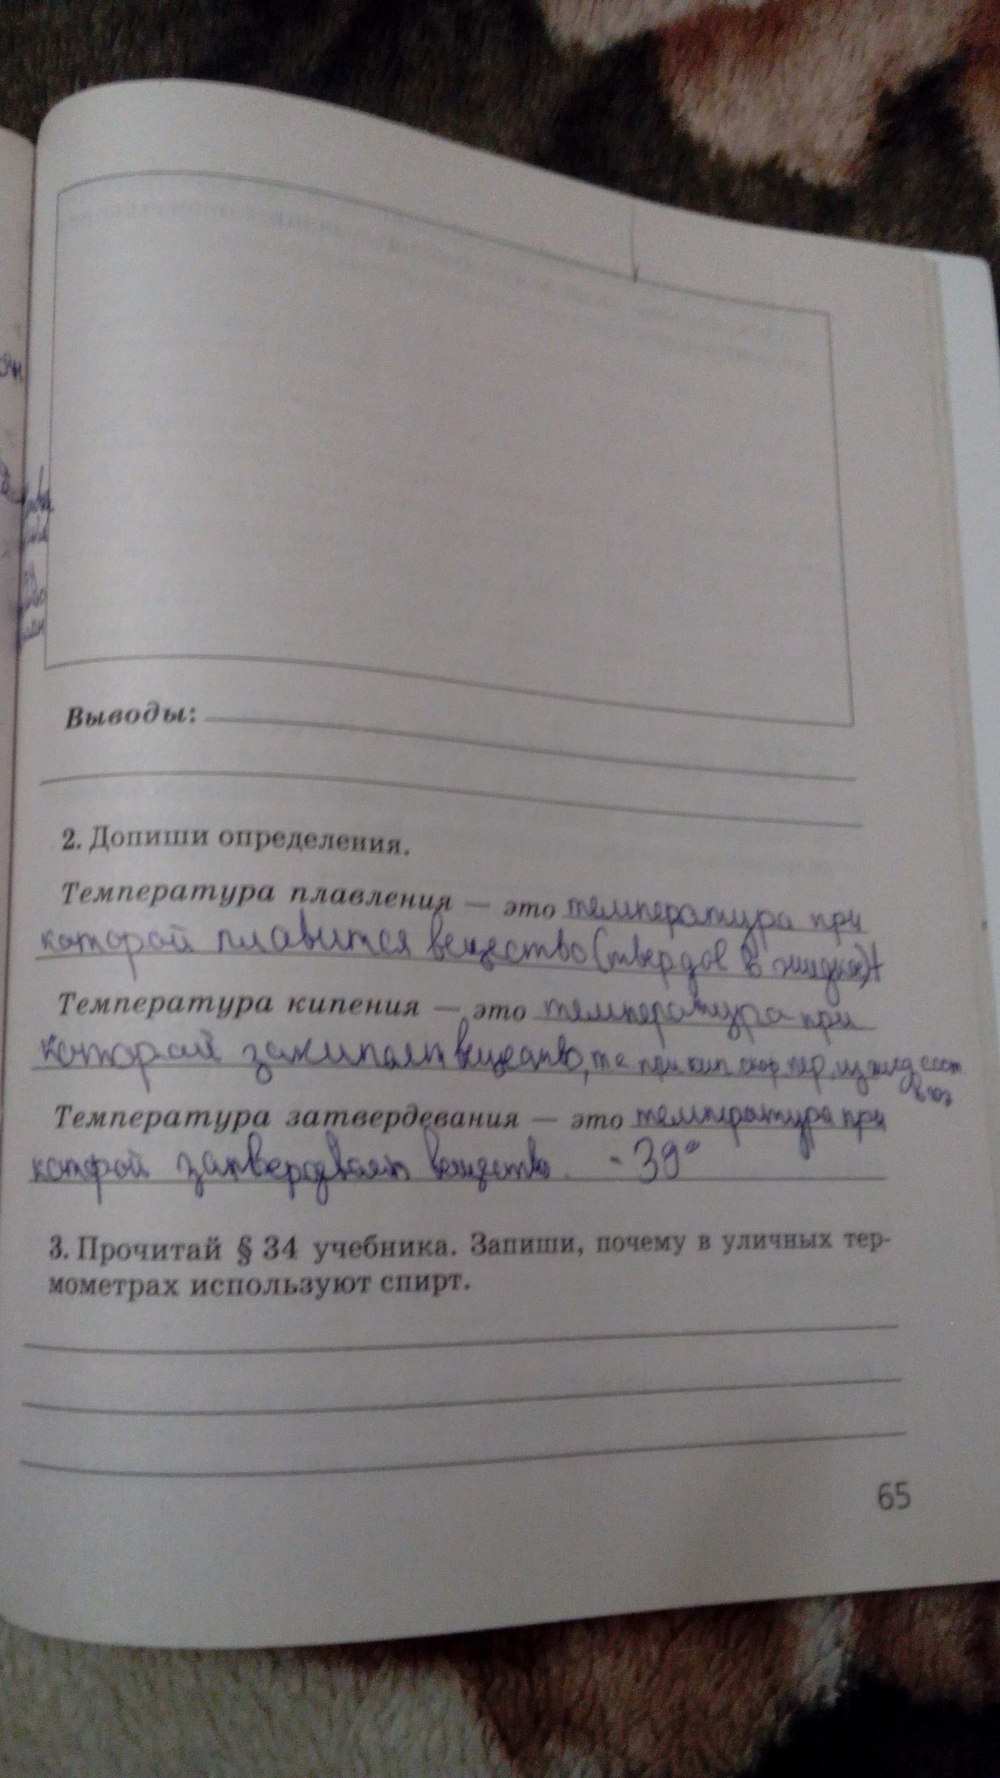 Выводы:
2. Допиши определения.
Температура плавления — это температура при
которой плавится вещество (твердое в жидкое)
Температура кипения — это температура при
которой закипает вещество, т е при кип
Температура затвердевания — это температура при
которой затвердевает вещество. -39°
3. Прочитай § 34 учебника. Запиши, почему в уличных тер-
мометрах используют спирт.
65